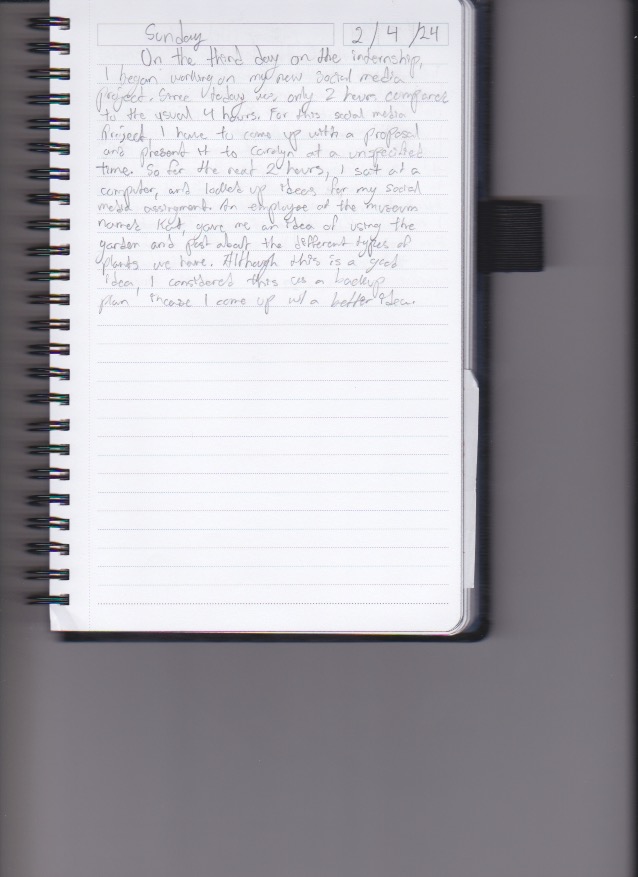 Sunday 2/4/24
On the third day on the internship,
I began working on my new social media
project. Since today was only 2 hours compared
to the usual 4 hours. For this social media
Project, I have to come up with a proposal
and present it to Carolyn at a unspecified
time. So for the next 2 hours, I sat at a
computer, and looked up ideas for my social
media assignment. An employee at the museum
named Kat, gave me an idea of using the
garden and post about the different types of
plants we have. Although this is a good
idea, I considered this as a backup
plan incase I come up w/ a better idea.